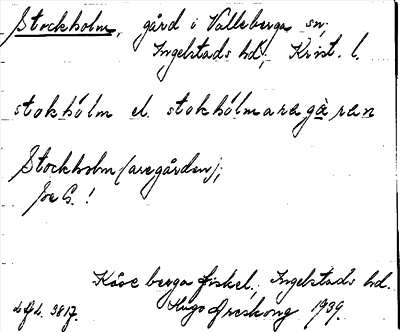 Stockholm, gård i Valleberga sn;
Ingelstads hd, Krist. l.
stokhólm el. stokhólmaragà̱ran
Stockholm (aregården);
Kåseberga fiskel., Ingelstads hd.
d.f.d. 3817. Hugo Areskoug 1939.